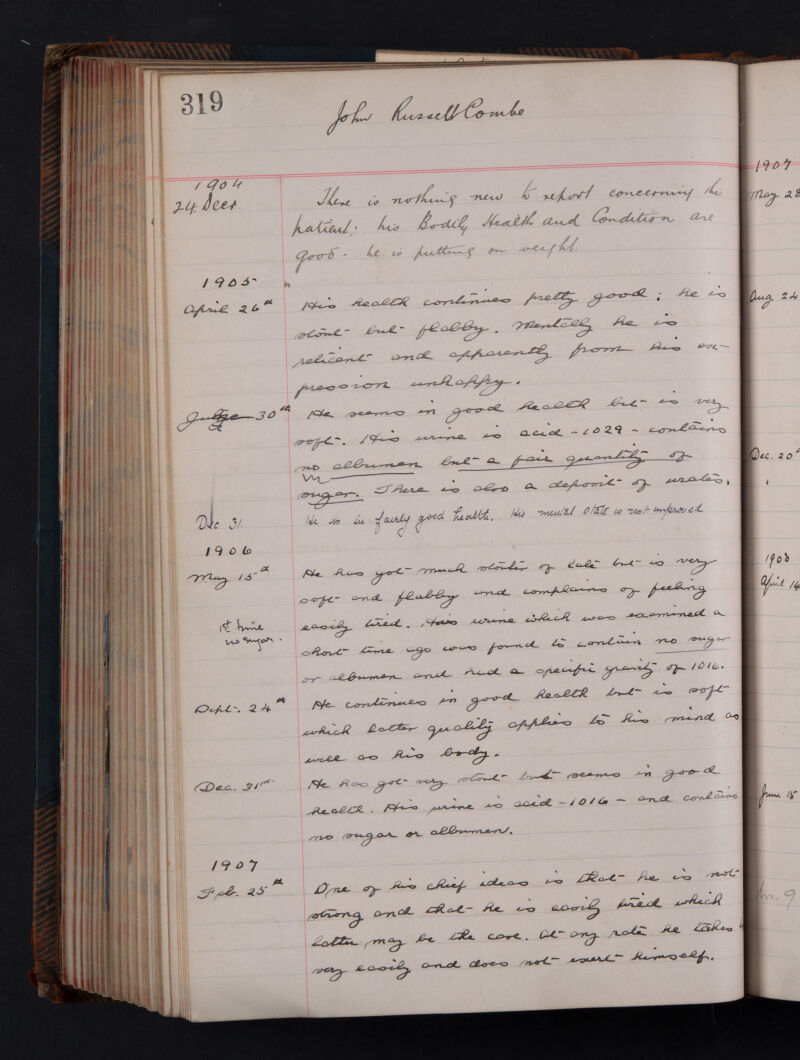 319
John Russell Combe
1904
24 Decr There is nothing new to report concerning this
patient; his Bodily Health and Condition are
good - he is putting on weight.
1905
April 26th His health continues pretty good; he is
stout but flabby. Mentally he is
reticent and apparently from his ex-
pression unhappy.
30th He seems in good health but is very
soft. His urine is acid - 1029 - contains
no albumen but a fair quantity of
sugar. There is also a deposit of urates.
Dec 31. He is in fairly good health. His mental state is not improved
1906
May 15th He has got much stouter of late but is very
soft and flabby and complains of feeling
easily tired. His urine which was examined a
1st time
no sugar.
short time ago was found to contain no sugar
or albumen and had a specific gravity of 1016.
Sept. 24th He continues in good health but is soft
which latter quality applies to his mind as
well as his body.
Dec. 31st He has got very stout but seems in good
health. His urine is acid - 1016 - and contains
no sugar or albumen.
1907
Feb. 25th One of his chief ideas is that he is not
strong and that he is easily tired which
latter may be the case. At any rate he takes
very easily and does not exert himself.
1907
May 28
Aug. 24
Dec. 20
1908
April 14
June 15
9